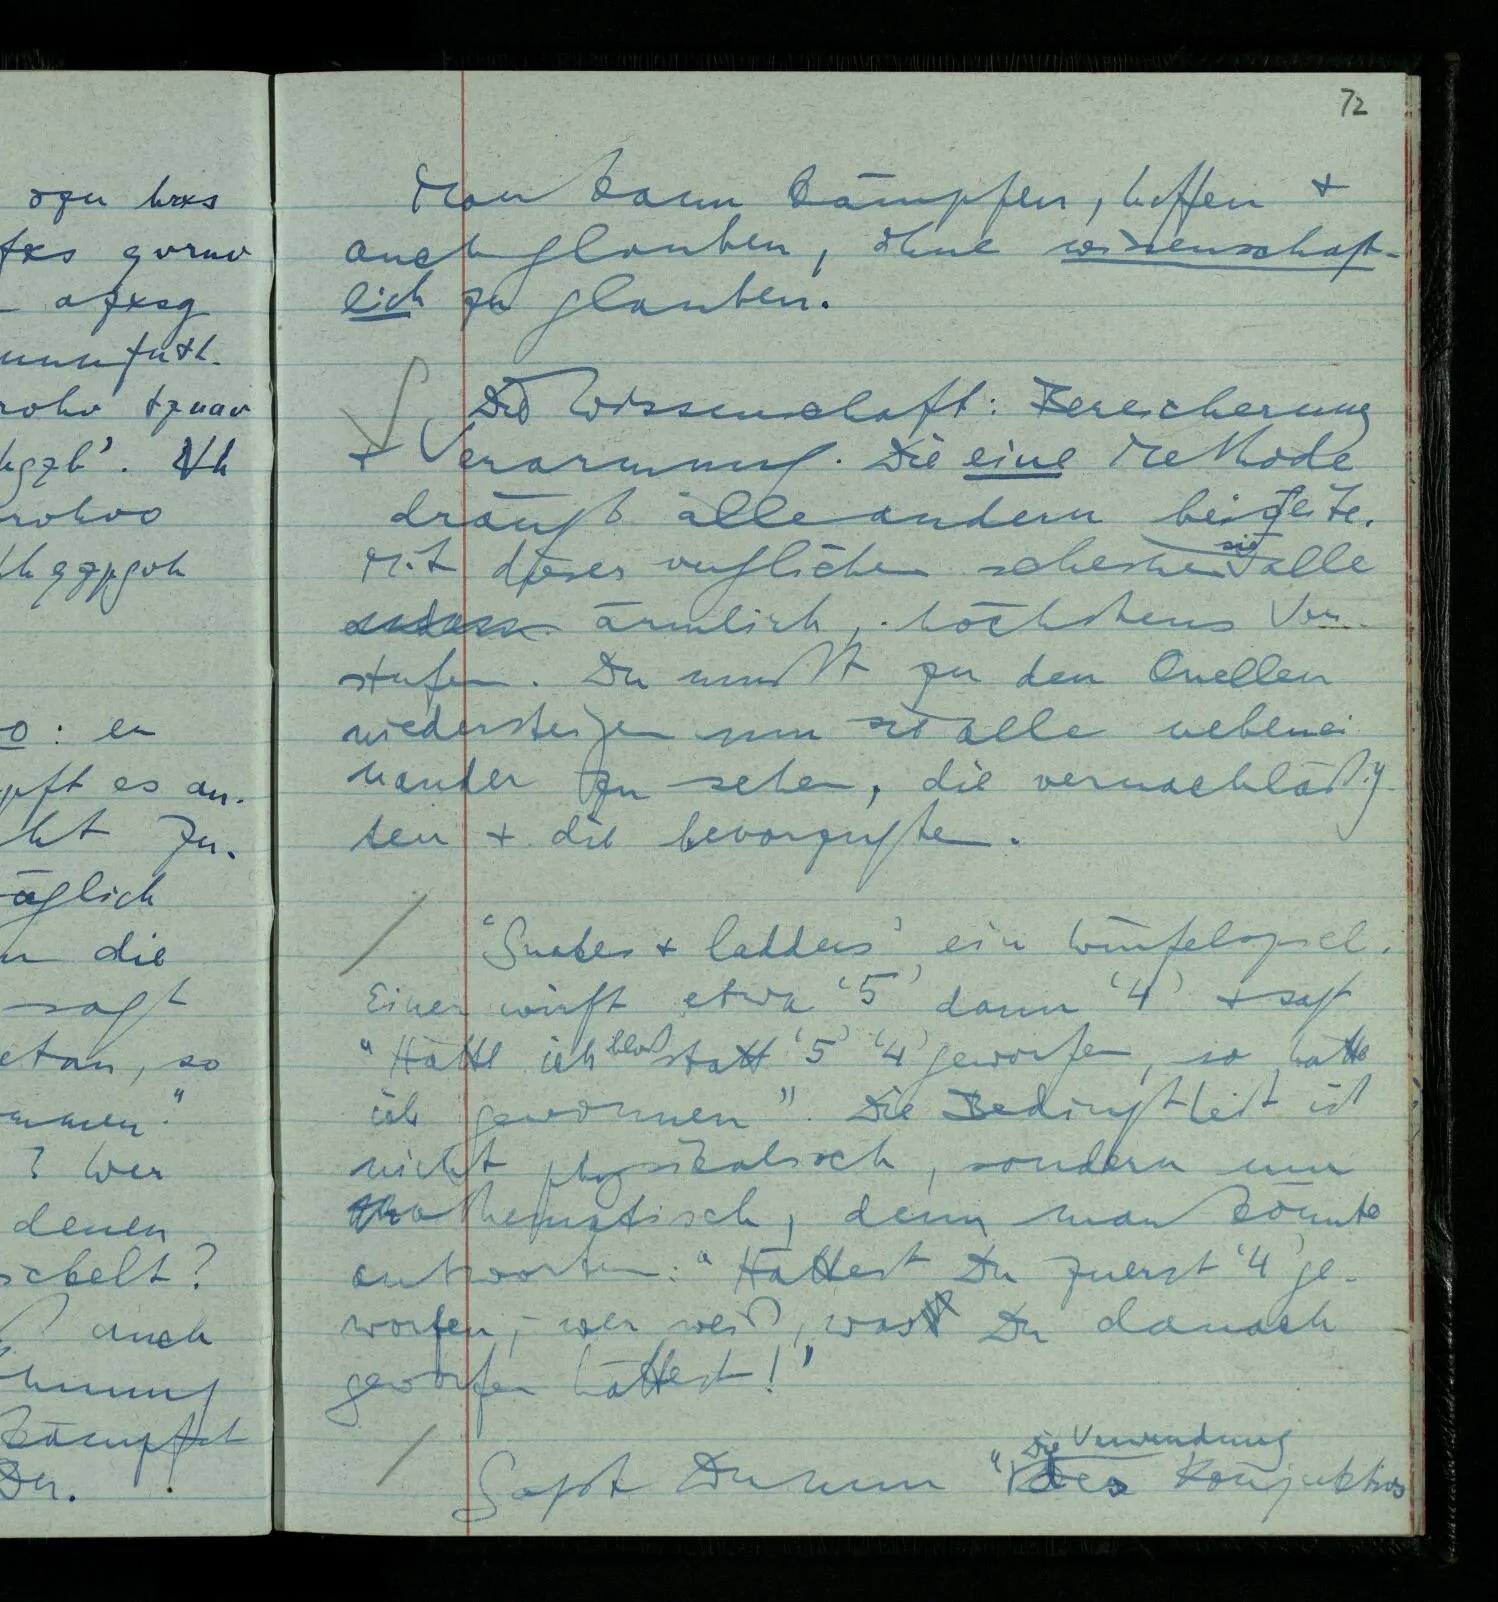 72
ozu hrxs
fxs gvrnv
afxsg
rohv tznav
rohvo
o: er
pft es an-
ht zu-
äglich
n die
sagt
etan, so
ommen."
? Wer
denen
schelt?
auch
hnung
kämpfst
Du.
Man kann kämpfen, hoffen +
auch glauben, ohne wissenschaft-
lich zu glauben.
Die Wissenschaft: Bereicherung
+ Verarmung. Die eine Methode
drängt alle andern beiseite.
Mit dieser verglichen scheinen sie alle
ärmlich, höchstens Vor-
stufen. Du mußt zu den Quellen
niedersteigen um sie alle nebenei-
nander zu sehen, die vernachläßig-
ten + die bevorzugten.
'Snakes + ladders' ein Würfelspiel.
Einer wirft etwa '5' dann '4' + sagt
"Hätte ich bloß statt '5' '4' geworfen, so hätte
ich gewonnen". Die Bedingtheit ist
nicht physikalisch, sondern nur
mathematisch, denn man könnte
antworten: "Hättest Du zuerst '4' ge-
worfen, – wer weiß, was Du danach
geworfen hättest!"
Sagst Du nun "Die Verwendung des Konjunktivs